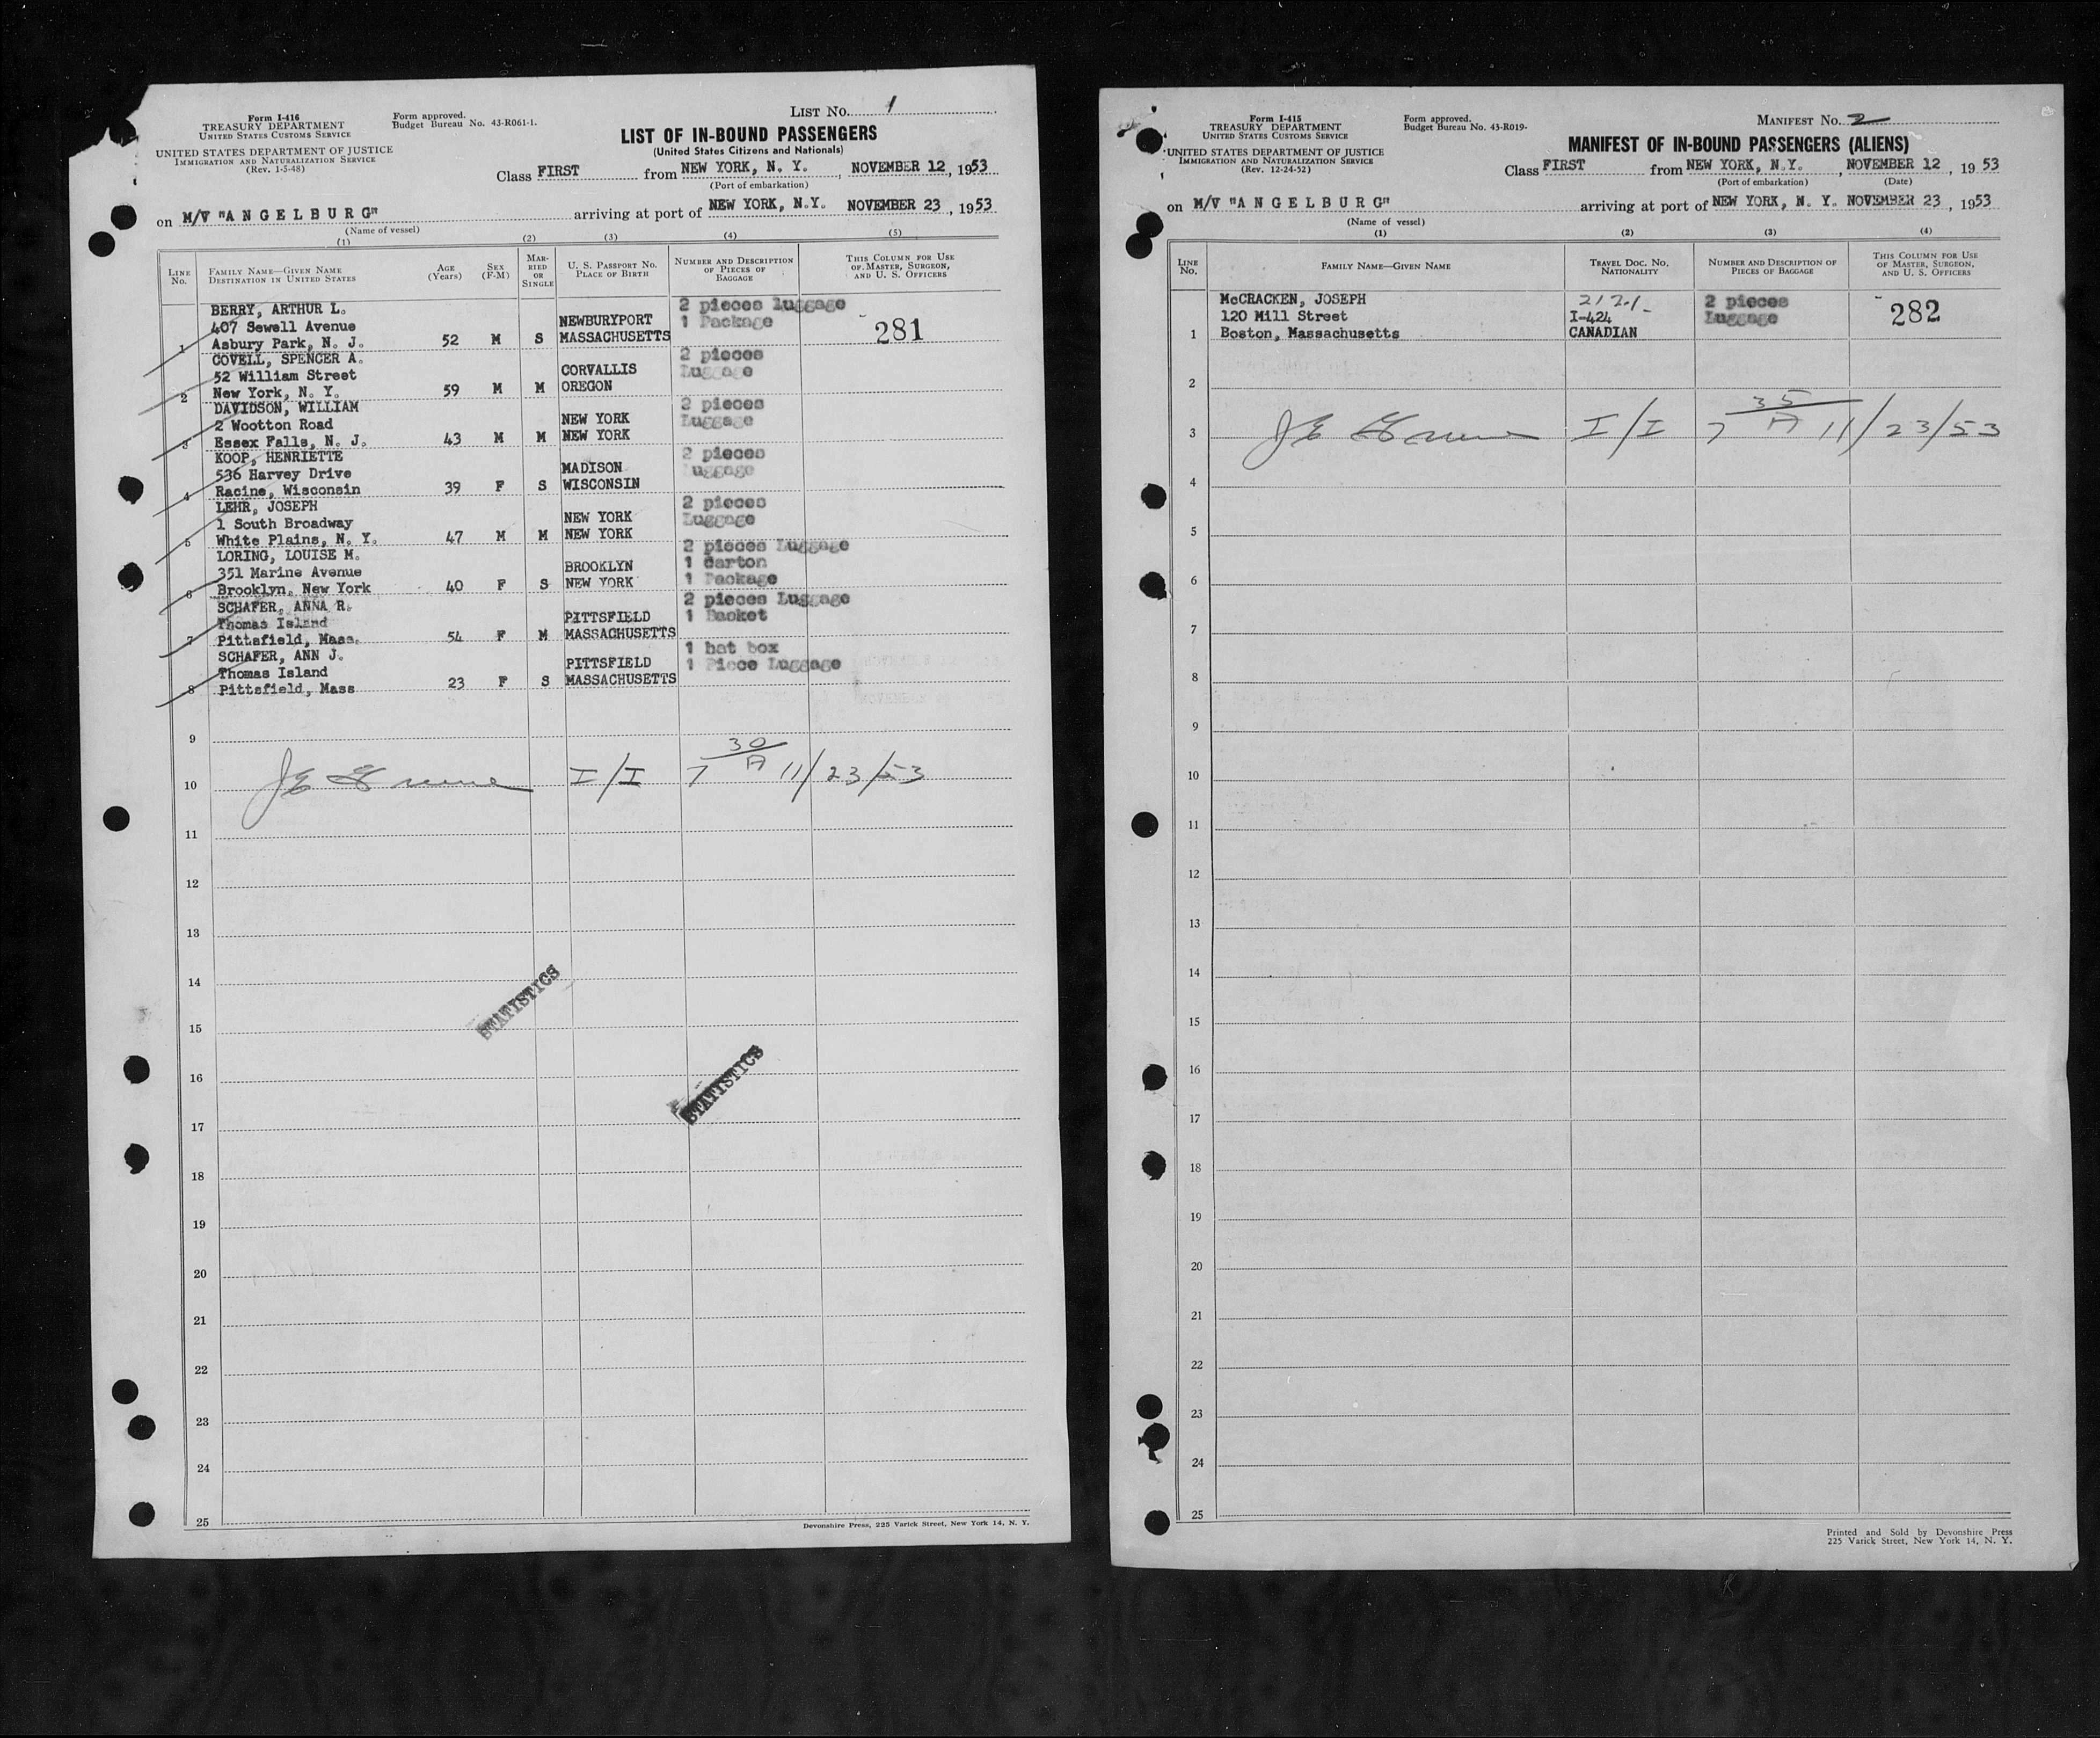 Form I-416
TREASURY DEPARTMENT
UNITED STATES CUSTOMS SERVICE
UNITED STATES DEPARTMENT OF JUSTICE
IMMIGRATION AND NATURALIZATION SERVICE
(Rev. 1-5-48)
Form approved.
Budget Bureau No. 43-R061-1.
LIST No. 1
LIST OF IN-BOUND PASSENGERS
(United States Citizens and Nationals)
Class FIRST from NEW YORK, N. Y., NOVEMBER 12, 1953
(Port of embarkation)
on M/V "A N G E L B U R G" arriving at port of NEW YORK, N.Y. NOVEMBER 23, 1953
(Name of vessel)
(1) (2) (3) (4) (5)
LINE No. FAMILY NAME—GIVEN NAME DESTINATION IN UNITED STATES AGE (Years) SEX (F-M) MARRIED OR SINGLE U. S. PASSPORT NO. PLACE OF BIRTH NUMBER AND DESCRIPTION OF PIECES OF BAGGAGE THIS COLUMN FOR USE OF MASTER, SURGEON, AND U. S. OFFICERS
BERRY, ARTHUR L. 2 pieces luggage
407 Sewell Avenue NEWBURYPORT 1 Package 281
1 Asbury Park, N. J. 52 M S MASSACHUSETTS
COVELL, SPENCER A. 2 pieces
52 William Street CORVALLIS Luggage
2 New York, N. Y. 59 M M OREGON
DAVIDSON, WILLIAM 2 pieces
2 Wootton Road NEW YORK Luggage
3 Essex Falls, N. J. 43 M M NEW YORK
KOOP, HENRIETTE 2 pieces
536 Harvey Drive MADISON Luggage
4 Racine, Wisconsin 39 F S WISCONSIN
LEHR, JOSEPH 2 pieces
1 South Broadway NEW YORK Luggage
5 White Plains, N. Y. 47 M M NEW YORK
LORING, LOUISE M. 2 pieces Luggage
351 Marine Avenue BROOKLYN 1 carton
6 Brooklyn, New York 40 F S NEW YORK 1 Package
SCHAFER, ANNA R. 2 pieces Luggage
Thomas Island PITTSFIELD 1 Basket
7 Pittsfield, Mass. 54 F M MASSACHUSETTS
SCHAFER, ANN J. 1 hat box
Thomas Island PITTSFIELD 1 Piece Luggage
8 Pittsfield, Mass 23 F S MASSACHUSETTS
9
10 I/I 7 30/A 11/23/53
11
12
13
14
STATISTICS
15
16
STATISTICS
17
18
19
20
21
22
23
24
25
Devonshire Press, 225 Varick Street, New York 14, N. Y.
Form I-415
TREASURY DEPARTMENT
UNITED STATES CUSTOMS SERVICE
UNITED STATES DEPARTMENT OF JUSTICE
IMMIGRATION AND NATURALIZATION SERVICE
(Rev. 12-24-52)
Form approved.
Budget Bureau No. 43-R019-
MANIFEST No. 2
MANIFEST OF IN-BOUND PASSENGERS (ALIENS)
Class FIRST from NEW YORK, N.Y., NOVEMBER 12, 1953
(Port of embarkation) (Date)
on M/V "A N G E L B U R G" arriving at port of NEW YORK, N. Y. NOVEMBER 23, 1953
(Name of vessel)
(1) (2) (3) (4)
LINE No. FAMILY NAME—GIVEN NAME TRAVEL DOC. NO. NATIONALITY NUMBER AND DESCRIPTION OF PIECES OF BAGGAGE THIS COLUMN FOR USE OF MASTER, SURGEON, AND U. S. OFFICERS
McCRACKEN, JOSEPH 2 pieces
120 Mill Street I-424 Luggage 282
1 Boston, Massachusetts CANADIAN
2
3 I/I 7 35/A 11/23/53
4
5
6
7
8
9
10
11
12
13
14
15
16
17
18
19
20
21
22
23
24
25
Printed and Sold by Devonshire Press
225 Varick Street, New York 14, N. Y.